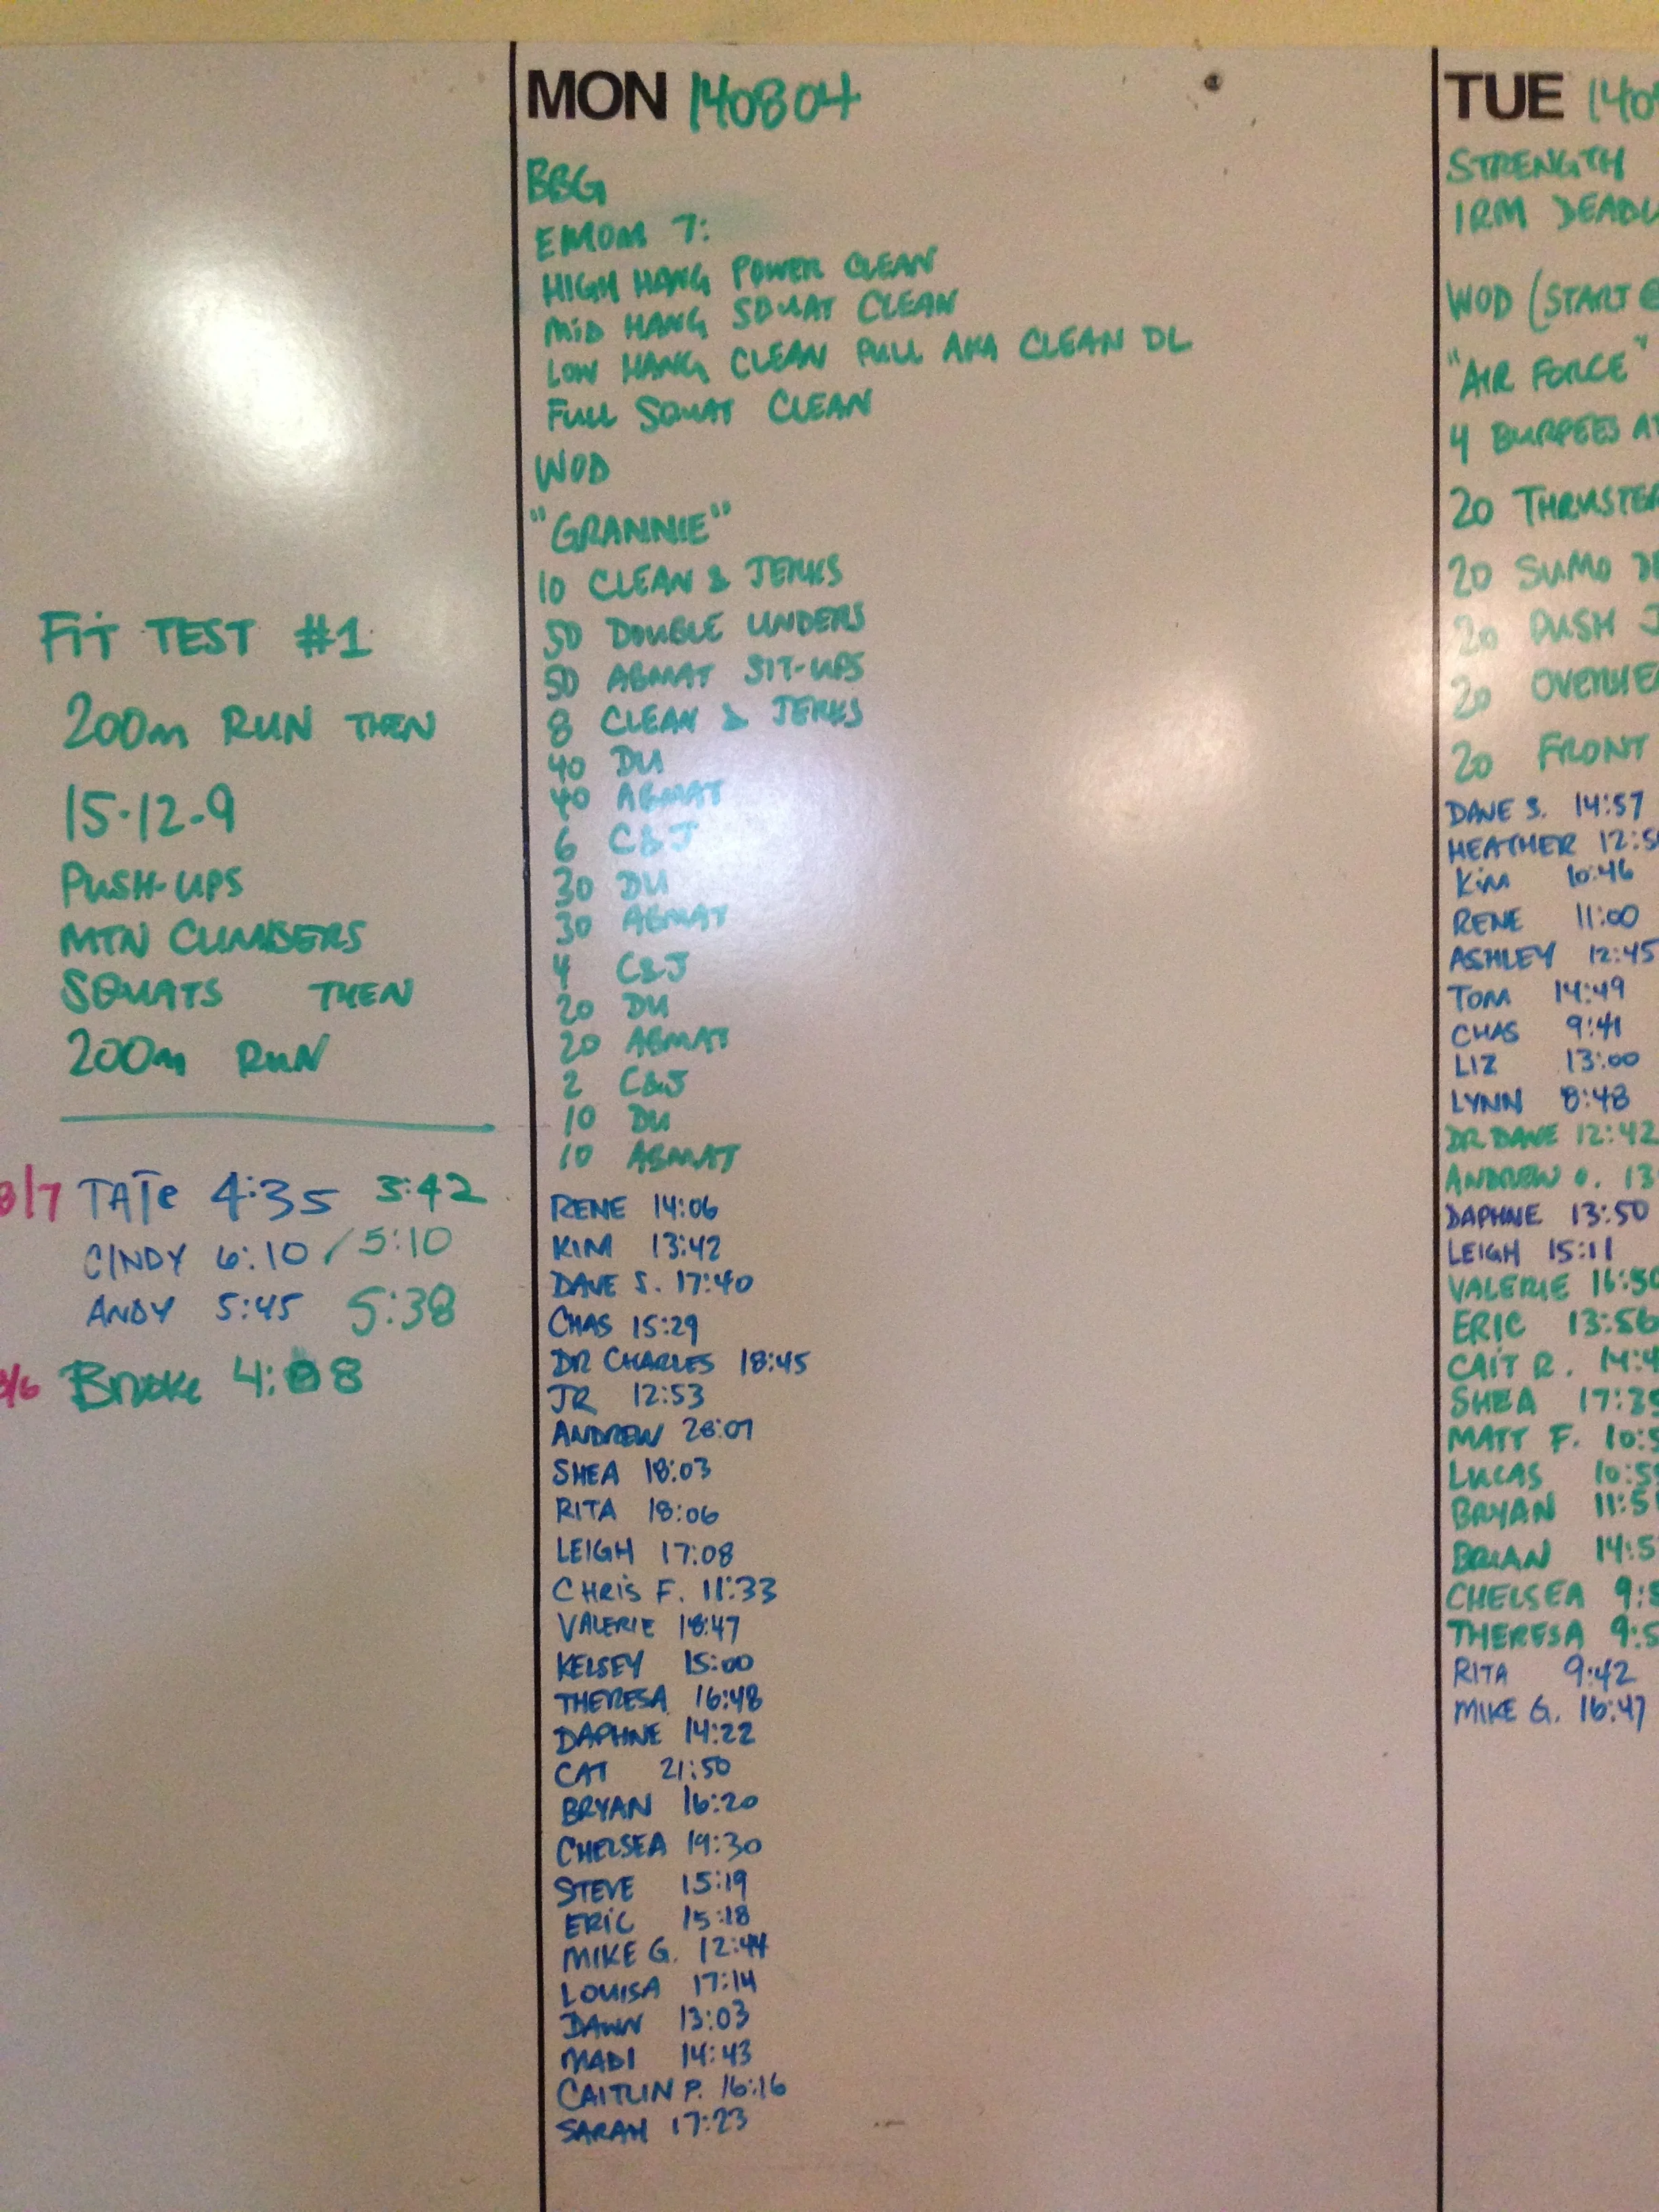 FIT TEST #1
200m RUN THEN
15-12-9
PUSH-UPS
MTN CLIMBERS
SQUATS THEN
200m RUN
8/7 TATE 4:35 3:42
CINDY 6:10 / 5:10
ANDY 5:45 5:38
8/6 BROOKE 4:08
MON 140804
BBG
EMOM 7:
HIGH HANG POWER CLEAN
MID HANG SQUAT CLEAN
LOW HANG CLEAN PULL AKA CLEAN DL
FULL SQUAT CLEAN
WOD
"GRANNIE"
10 CLEAN & JERKS
50 DOUBLE UNDERS
50 ABMAT SIT-UPS
8 CLEAN & JERKS
40 DU
40 ABMAT
6 C&J
30 DU
30 ABMAT
4 C&J
20 DU
20 ABMAT
2 C&J
10 DU
10 ABMAT
RENE 14:06
KIM 13:42
DAVE S. 17:40
CHAS 15:29
DR CHARLES 18:45
JR 12:53
ANDREW
SHEA 18:03
RITA 18:06
LEIGH 17:08
CHRIS F. 11:33
VALERIE 18:47
KELSEY 15:00
THERESA 16:48
DAPHNE 14:22
CAT 21:50
BRYAN 16:20
CHELSEA 19:30
STEVE 15:19
ERIC 15:18
MIKE G. 12:44
LOUISA 17:14
DAWN 13:03
MADI 14:43
CAITLIN P. 16:16
SARAH 17:23
TUE 140
STRENGTH
1RM DEADL
WOD (START @
"AIR FORCE"
4 BURPEES AT
20 THRUSTER
20 SUMO DE
20 PUSH J
20 OVERHEA
20 FRONT
DAVE S. 14:57
HEATHER 12:5
KIM 10:46
RENE 11:00
ASHLEY 12:45
TOM 14:49
CHAS 9:41
LIZ 13:00
LYNN 8:48
DR DAVE 12:42
ANDREW O. 13
DAPHNE 13:50
LEIGH 15:11
VALERIE 16:50
ERIC 13:56
CAIT R. 14:4
SHEA 17:35
MATT F. 10:5
LUCAS 10:5
BRYAN 11:5
BRIAN 14:5
CHELSEA 9:5
THERESA 9:5
RITA 9:42
MIKE G. 16:47